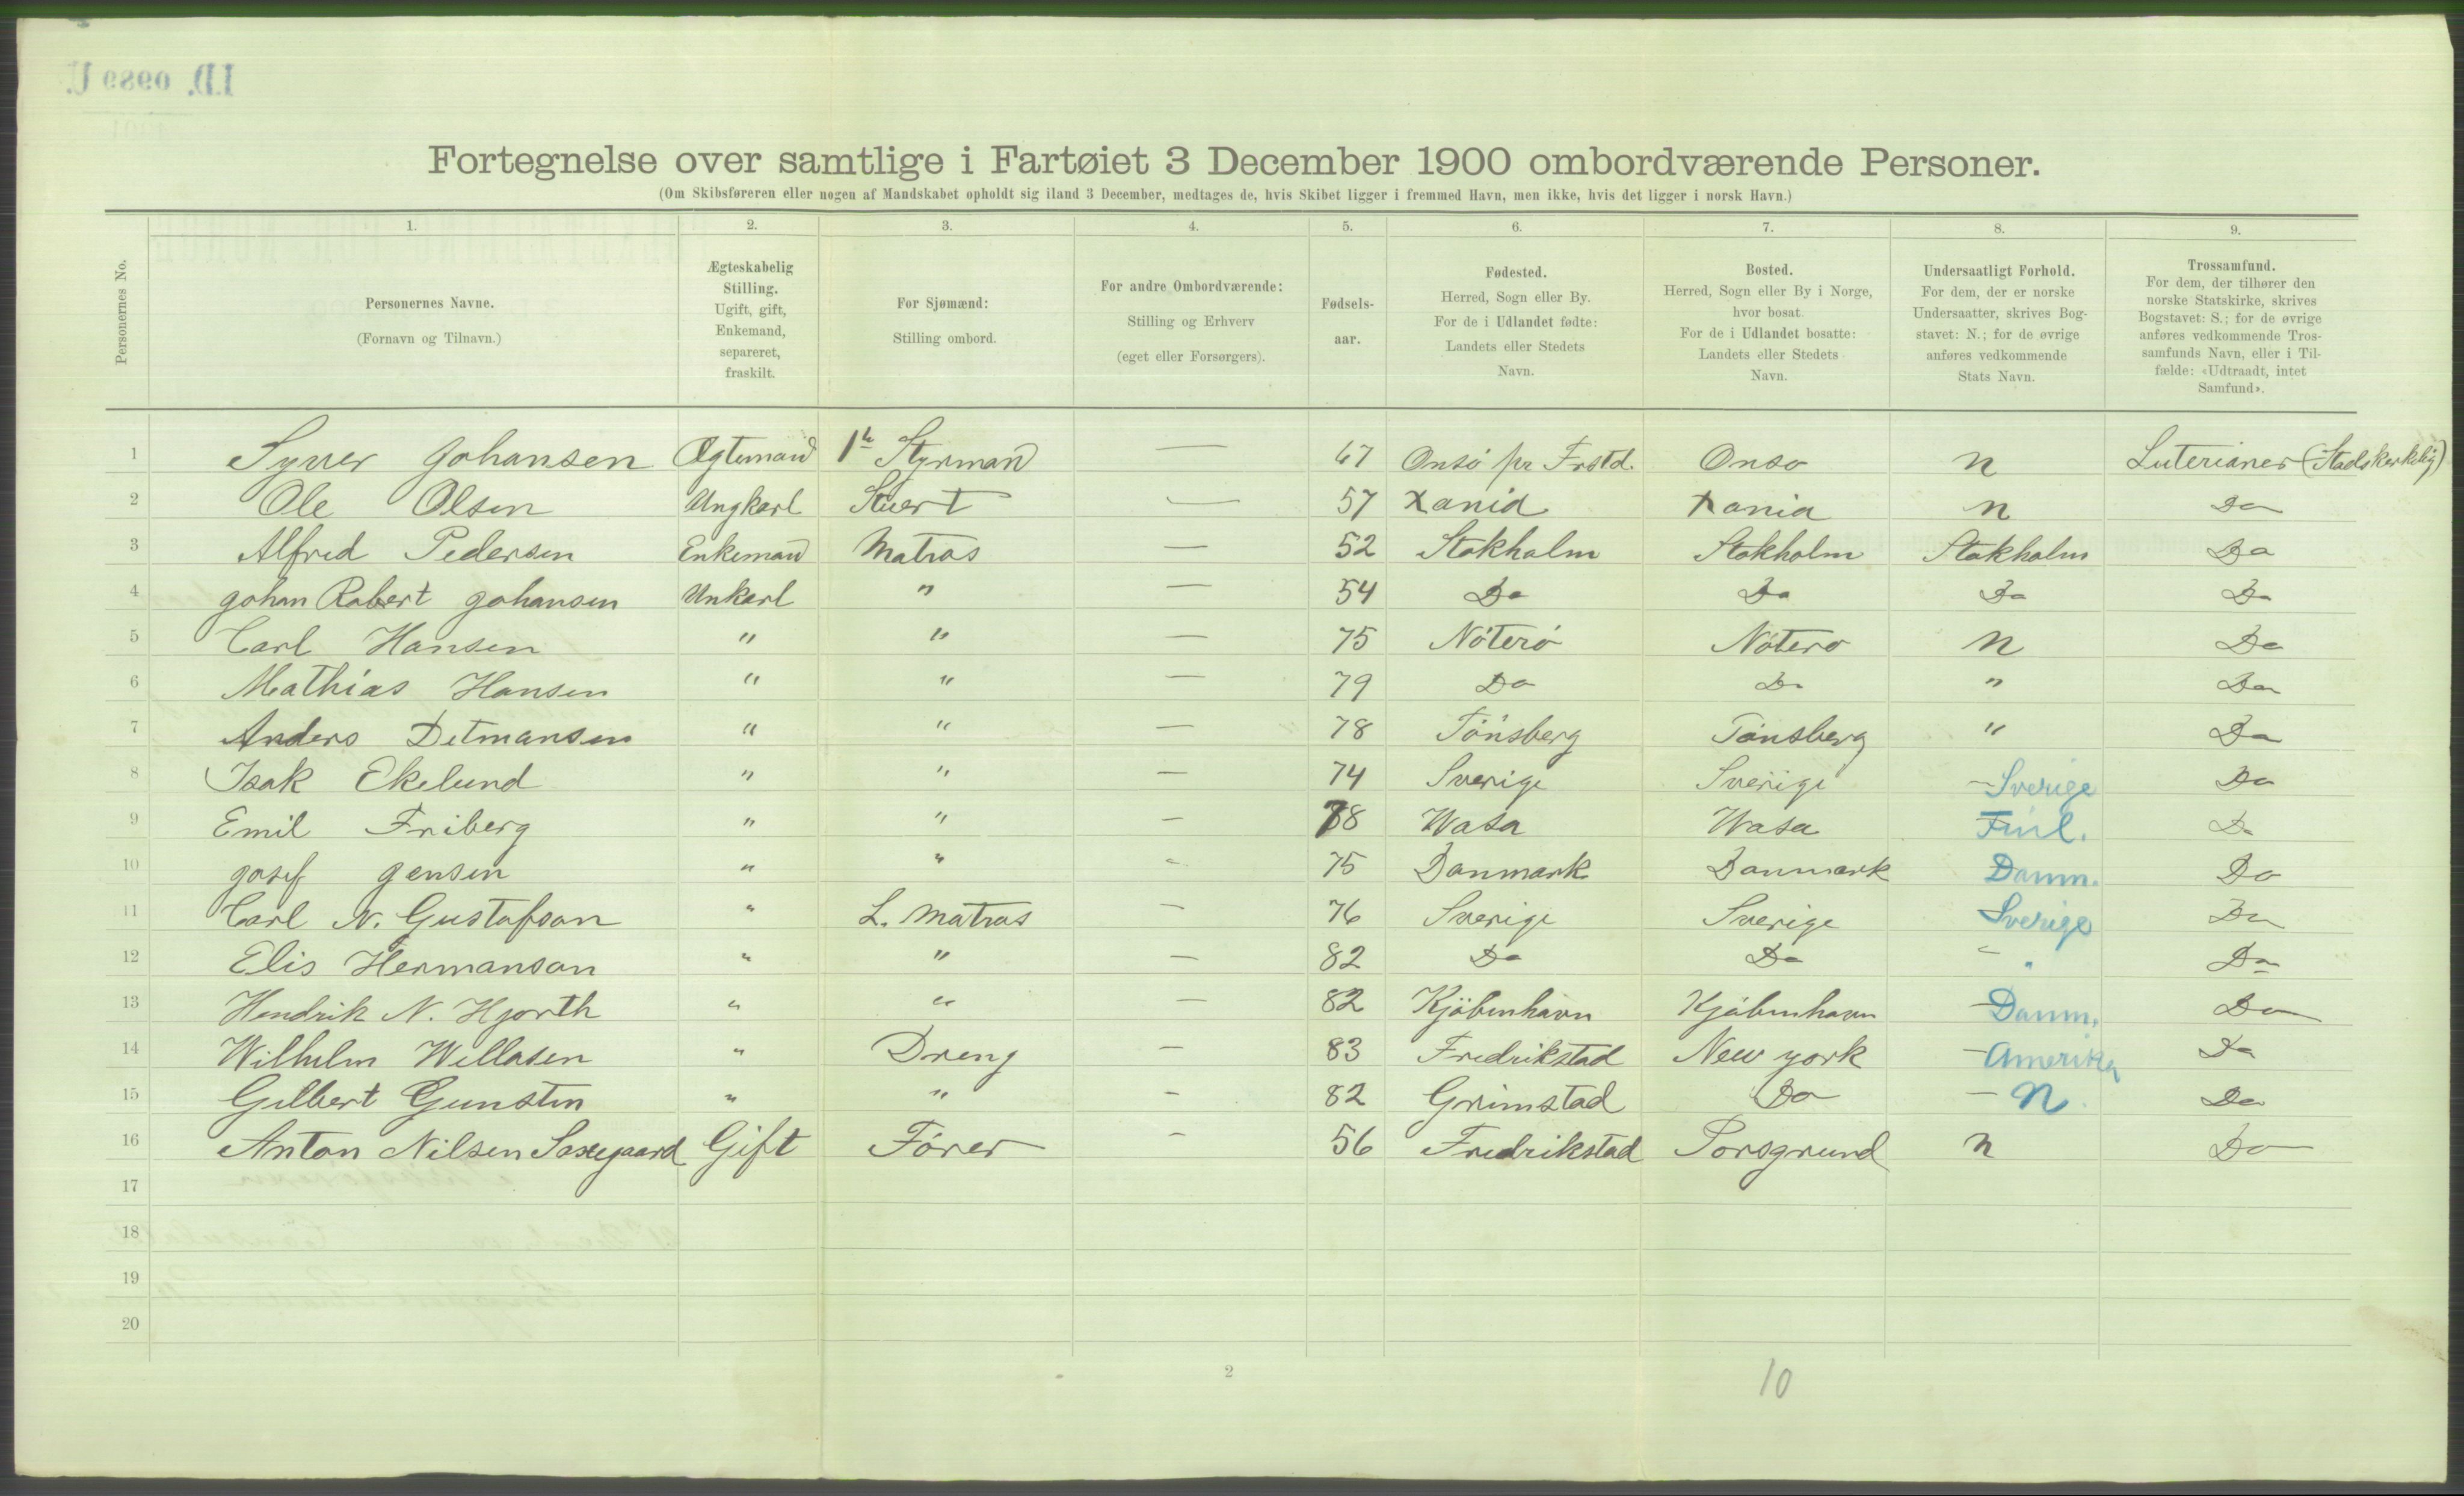 Fortegnelse over samtlige i Fartøiet 3 December 1900 ombordværende Personer.
(Om Skibsføreren eller nogen af Mandskabet opholdt sig iland 3 December, medtages de, hvis Skibet ligger i fremmed Havn, men ikke, hvis det ligger i norsk Havn.)
Personernes No.
1. 2. 3. 4. 5. 6. 7. 8. 9.
Personernes Navne.
(Fornavn og Tilnavn.)
Ægteskabelig
Stilling.
Ugift, gift,
Enkemand,
separeret,
fraskilt.
For Sjømænd:
Stilling ombord.
For andre Ombordværende:
Stilling og Erhverv
(eget eller Forsørgers).
Fødsels-
aar.
Fødested.
Herred, Sogn eller By.
For de i Udlandet fødte:
Landets eller Stedets
Navn.
Bosted.
Herred, Sogn eller By i Norge,
hvor bosat.
For de i Udlandet bosatte:
Landets eller Stedets
Navn.
Undersaatligt Forhold.
For dem, der er norske
Undersaatter, skrives Bog-
stavet: N.; for de øvrige
anføres vedkommende
Stats Navn.
Trossamfund.
For dem, der tilhører den
norske Statskirke, skrives
Bogstavet: S.; for de øvrige
anføres vedkommende Tros-
samfunds Navn, eller i Til-
fælde: «Udtraadt, intet
Samfund».
1 Syver Johansen Ægtemand 1ste Styrmand — 67 Onsö pr Frstd. Onso N Luterianer (Stadskerkelig)
2 Ole Olsen Ungkarl Stuert — 57 Xania Xania N Do
3 Alfred Pedersen Enkemand Matros — 52 Stokholm Stokholm Stokholm Do
4 Johan Robert Johansen Unkarl " — 54 Do Do Do Do
5 Carl Hansen " " — 75 Nöterö Nötero N Do
6 Mathias Hansen " " — 79 Do Do " Do
7 Anders Detmansen " " — 78 Tönsberg Tönsberg " Do
8 Isak Ekelund " " — 74 Sverige Sverige - Sverige Do
9 Emil Friberg " " — 78 Wasa Wasa Finl. Do
10 Josef Jensen " " - 75 Danmark Danmark Danm. Do
11 Carl N. Gustafson " L. Matros — 76 Sverige Sverige Sverige Do
12 Elis Hermanson " " — 82 Do Do - " Do
13 Hendrik N. Hjorth " " — 82 Kjöbenhavn Kjöbenhavn - Danm. Do
14 Wilhelm Willasen " Dreng — 83 Fredrikstad New York - Amerika Do
15 Gilbert Gunsten " " - 82 Grimstad Do - N Do
16 Anton Nilsen Saxegaard Gift Förer - 56 Fredrikstad Porsgrund N Do
17
18
19
20
2
10